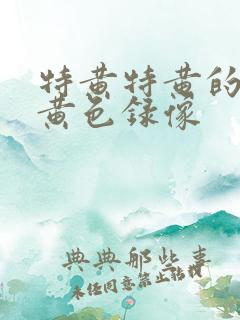 特黄特黄的
黄色録像
典典那些事
未经同意禁止转载